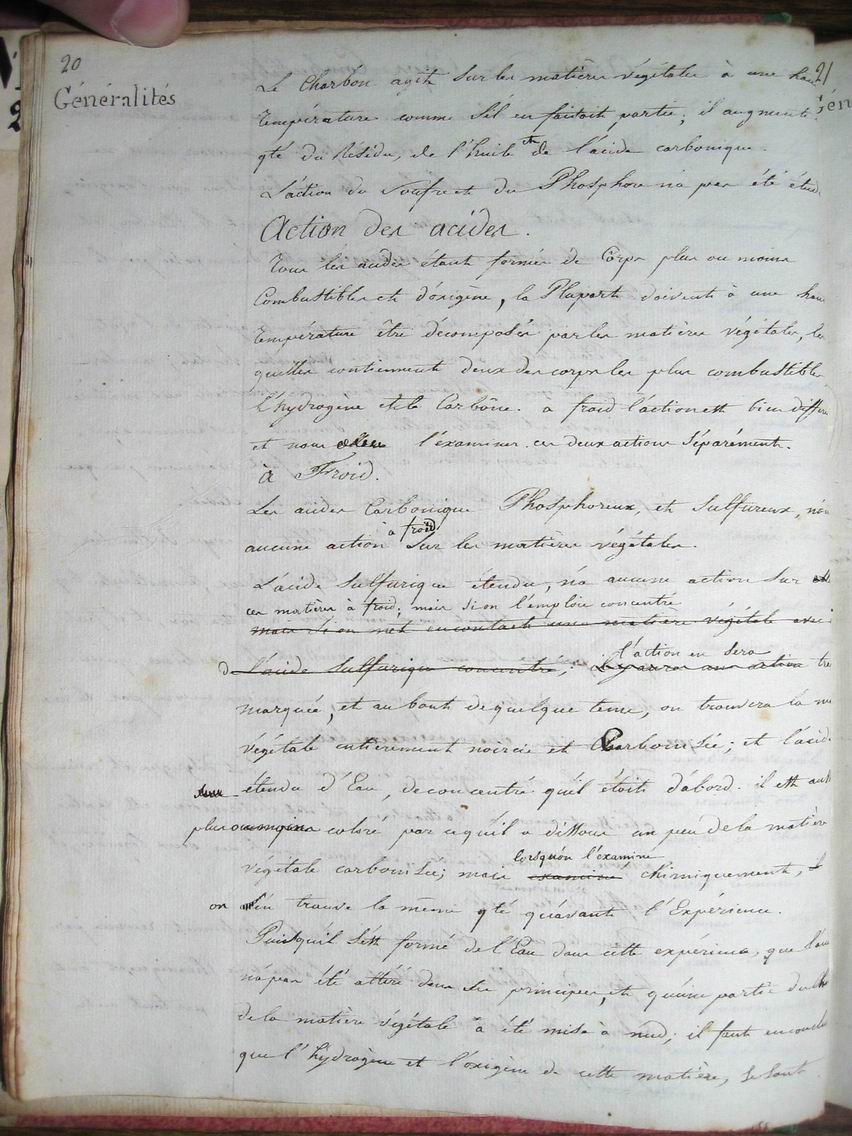 20
21
Généralités
Le Charbon agit sur les matières végétales à une hau
température comme s'il en faisoit partie; il augmente
qté du Résidu, de l'huile et de l'acide carbonique.
L'action du Soufre et du Phosphore n'a pas été étud
Action des acides.
Tous les acides étant formés de Corps plus ou moins
Combustibles et d'oxigène, la Plupart doivent à une hau
température être décomposés par les matières végétales, les
quelles contiennent deux des corps les plus combustibles
l'hydrogène et le Carbône. a froid l'action est bien differ
et nous allons l'examiner ces deux actions séparément.
à Froid.
Les acides Carbonique Phosphoreux, et Sulfureux, n'on
aucune action à froid sur les matières végétales.
L'acide Sulfurique étendu, n'a aucune action sur
ces matières à froid; mais si on l'emploie concentré
mais si on met en contact une matière végétale avec
l'acide sulfurique concentré; l'action en sera tres
marquée, et au bout de quelque tems, on trouvera la m
végétale entierement noircie et Charbonisée; et l'acide
étendu d'Eau, de concentré qu'il étoit d'abord. il est aussi
plus ou moins coloré par ce qu'il a dissous un peu de la matière
végétale carbonisée; mais lorsqu'on l'examine chimiquement, il
on en trouve la même qté qu'avant l'Expérience.
Puisqu'il s'est formé de l'Eau dans cette expérience, que l'aci
n'a pas été altéré dans ses principes, et qu'une partie du Cha
de la matière végétale a été mise à nud; il faut en conclu
que l'hydrogène et l'oxigène de cette matière, se sont